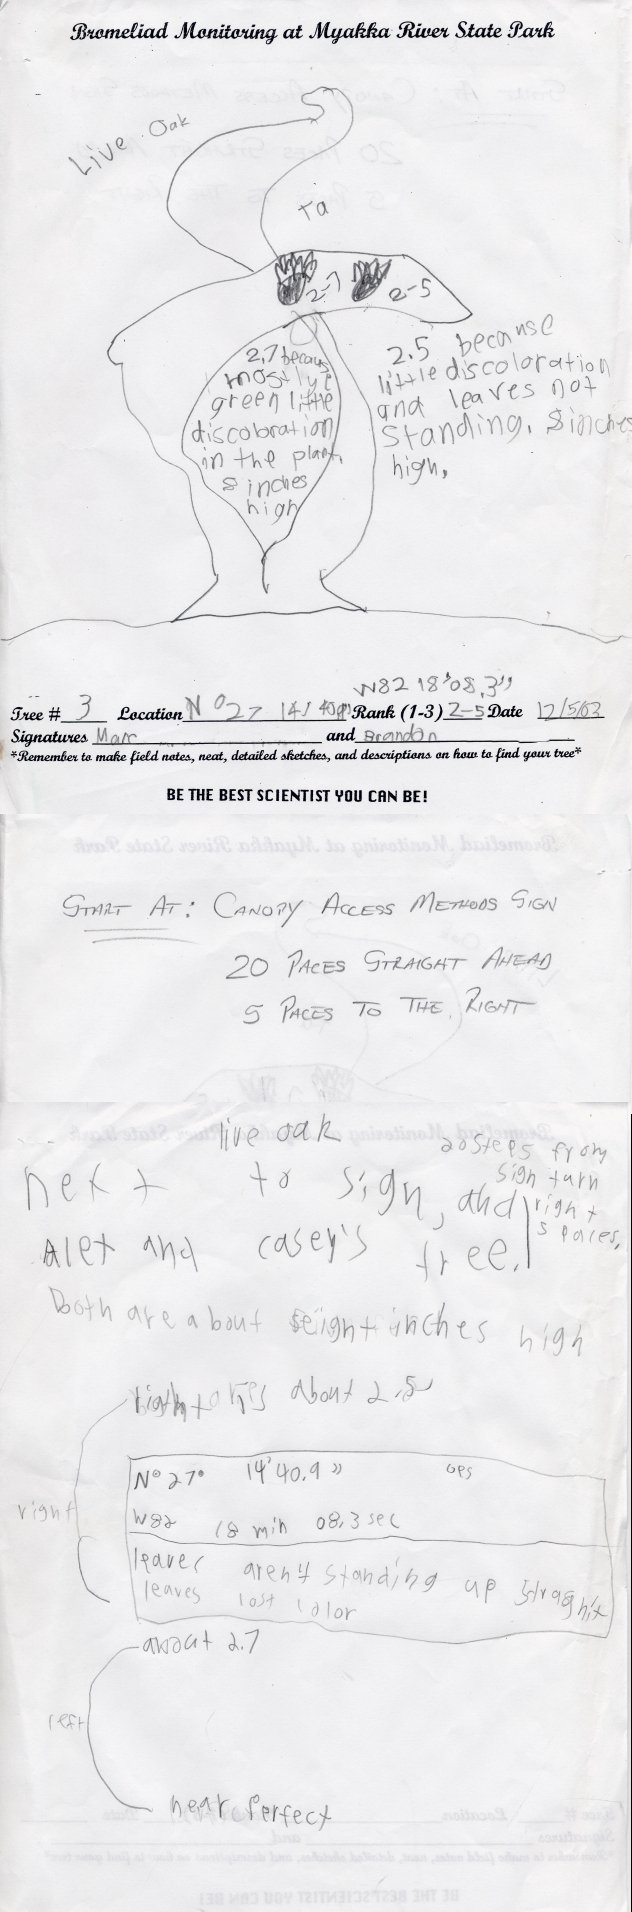 Bromeliad Monitoring at Myakka River State Park
Live Oak
ra
2-7
2-5
2,7 because
mostlye
green little
discoloration
in the plant,
8 inches
high
2.5 because
little discoloration
and leaves not
standing. 8 inches
high.
W82 18'08.3"
Tree # 3 Location N °27 14' 40.9" Rank (1-3) 2-5 Date 12/5/03
Signatures Marc and Brandon
*Remember to make field notes, neat, detailed sketches, and descriptions on how to find your tree*
BE THE BEST SCIENTIST YOU CAN BE!
START AT: CANOPY ACCESS METHODS SIGN
20 PACES STRAIGHT AHEAD
5 PACES TO THE RIGHT
live oak
next to sign, and
Alex and casey's tree.
20 steps from
sign turn
right
5 paces.
Both are about eight inches high
about 2.5
right
N° 27° 14'40.9" GPS
W82 18 min 08.3 sec
leaves aren't standing up straghit
leaves lost color
about 2.7
left
near perfect